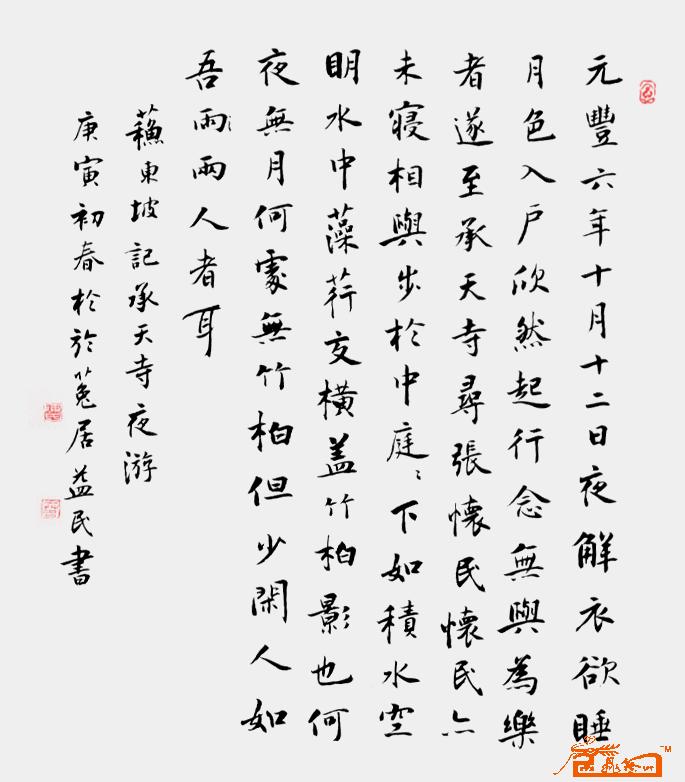 元豐六年十月十二日夜解衣欲睡
月色入戶欣然起行念無與為樂
者遂至承天寺尋張懷民懷民亦
未寢相與步於中庭〻下如積水空
明水中藻荇交橫盖竹柏影也何
夜無月何處無竹柏但少閑人如
吾兩〻兩人者耳
蘇東坡記承天寺夜游
庚寅初春於於菟居益民書